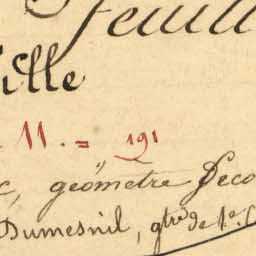 Feuill
ille
11. = 191
c, géomètre Seco
Dumesnil, gtre de 1e. C